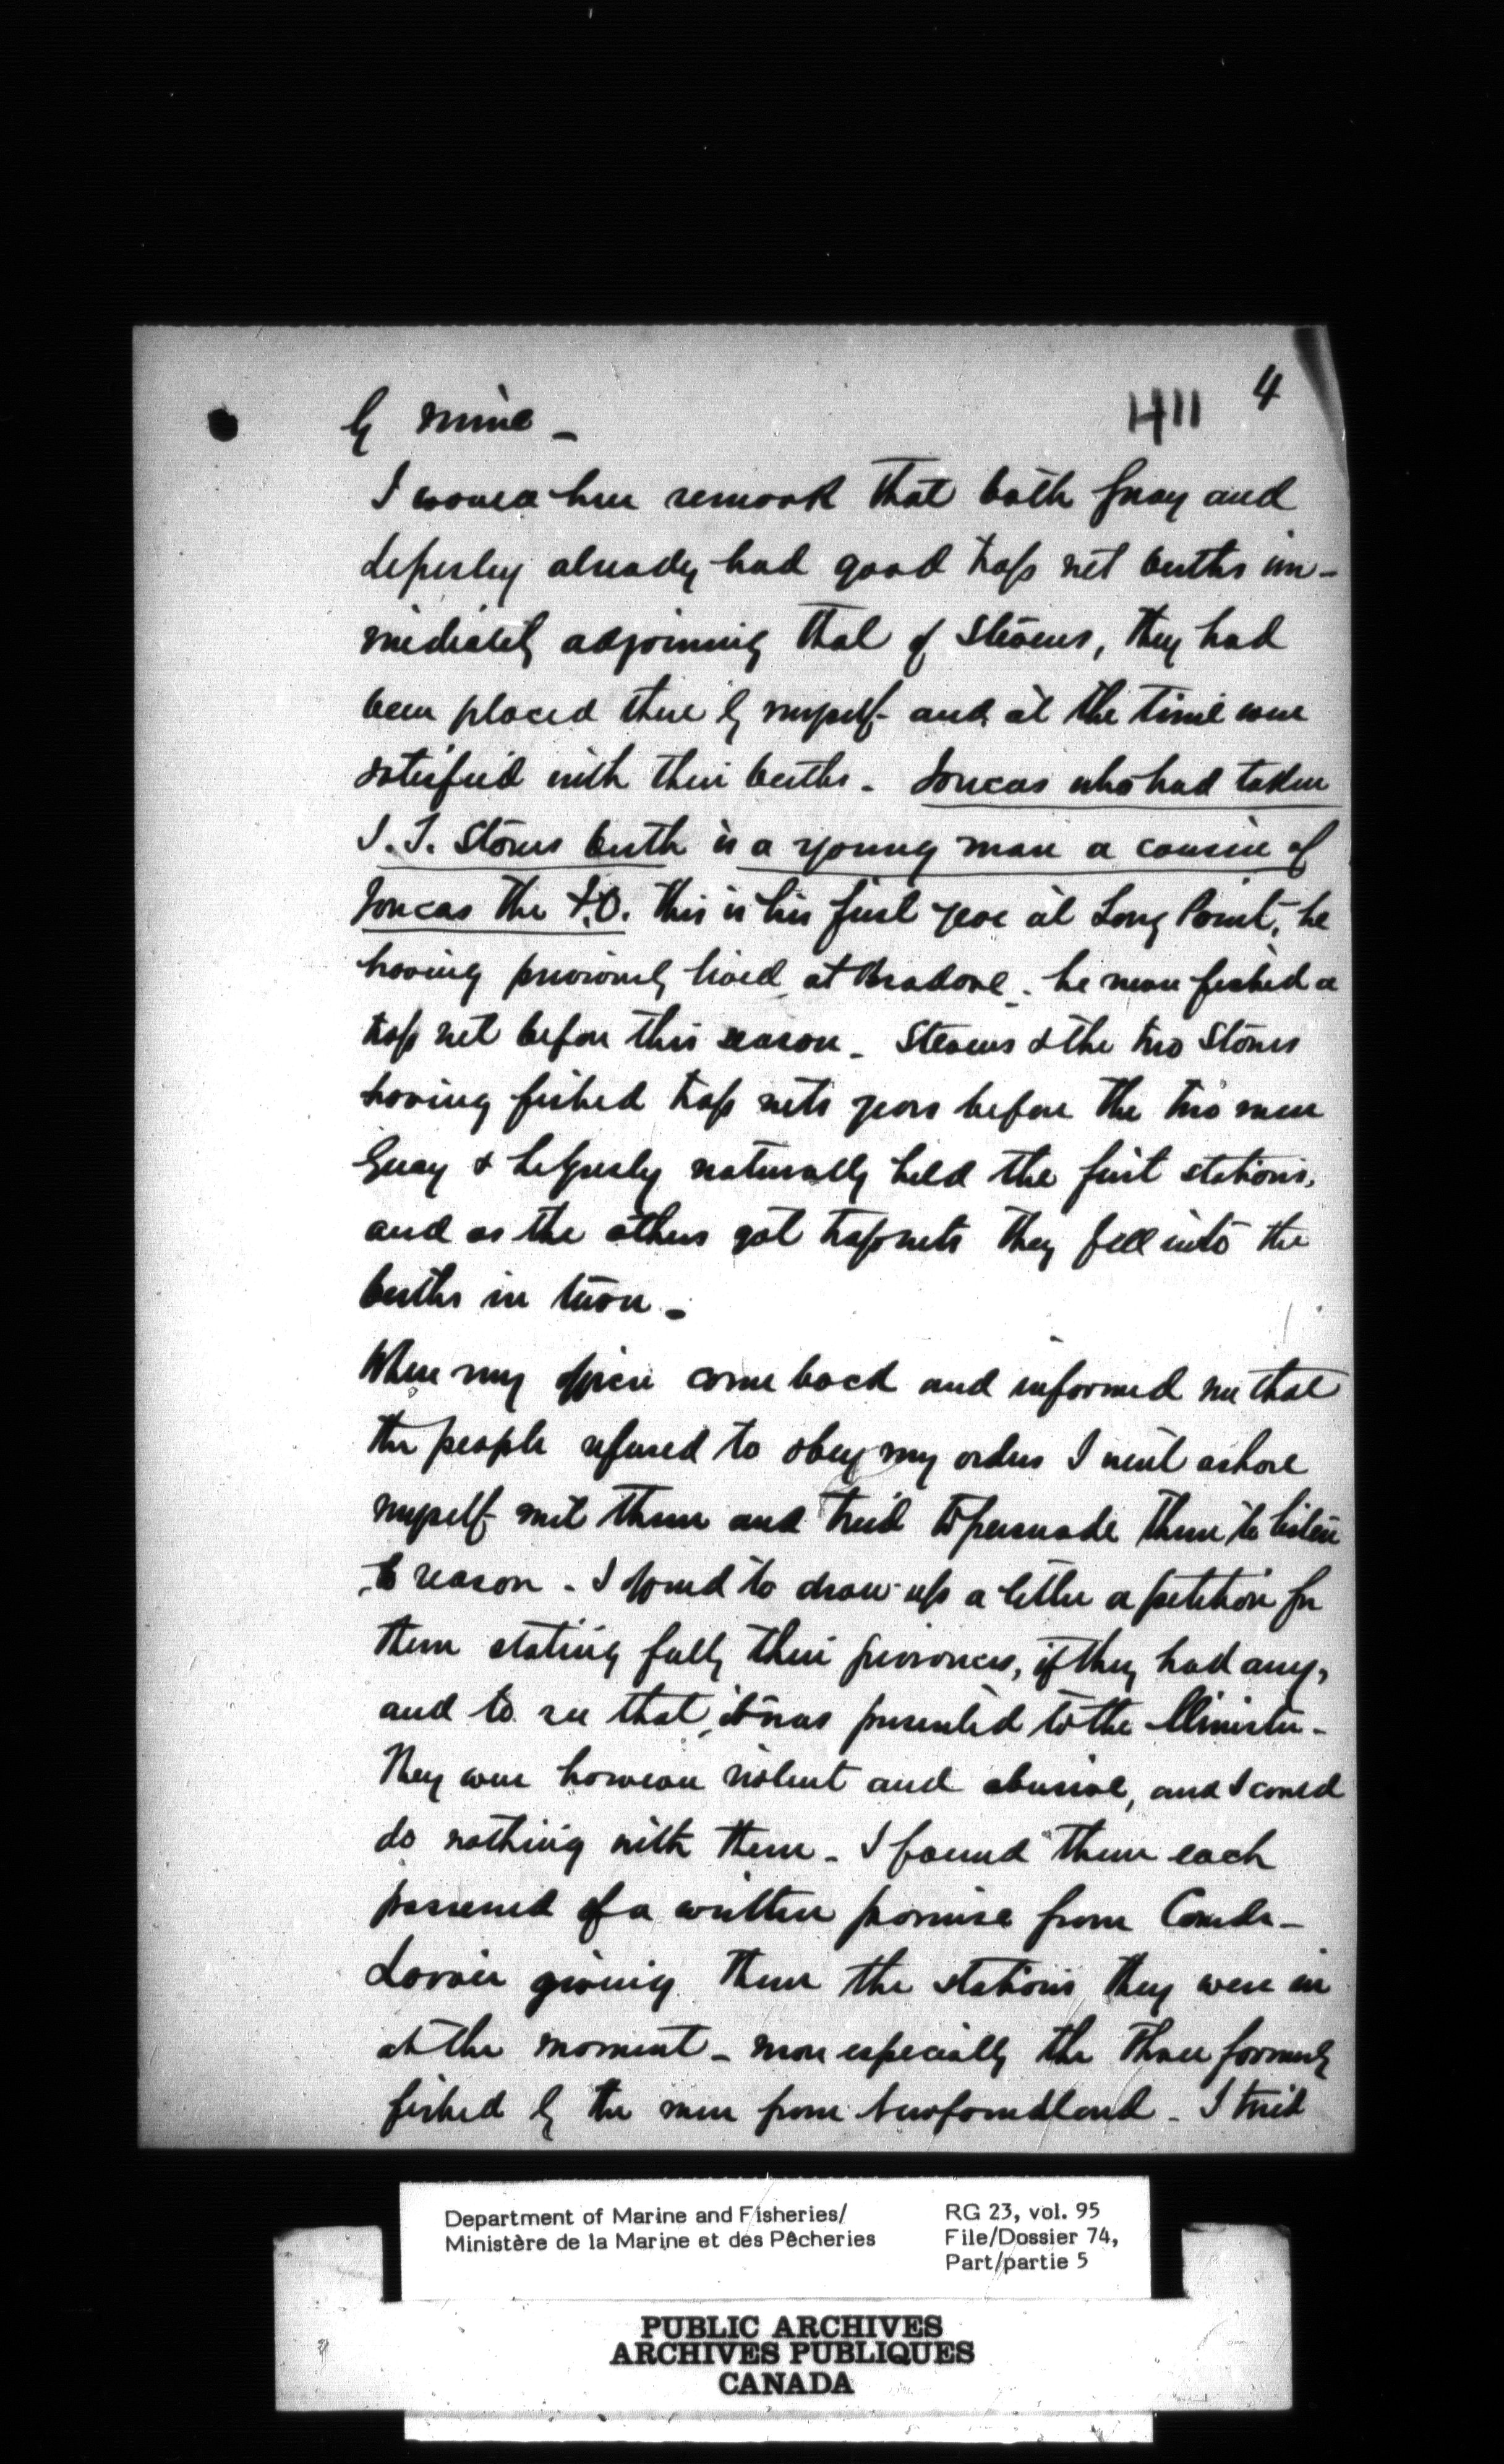 4
H11
by mine -
I would here remark that both Guay and
Lefesley already had good trap net berths im-
mediately adjoining that of Stevens, they had
been placed there by myself and at the time were
satisfied with their berths - Joncas who had taken
J. J. Stones berth is a young man a cousin of
Joncas the F.O. this is his first year at Long Point, he
having previously lived at Bradore. he never fished a
trap net before this season - Stevens & the two Stones
having fished trap nets years before the two men
Guay & Lefesley naturally held the first stations,
and as the others got trapnets they fell into the
berths in turn -
When my officer came back and informed me that
the people refused to obey my orders I went ashore
myself met them and tried to persuade them to listen
to reason - I offered to draw up a letter a petition for
them stating fully their grievances, if they had any,
and to see that it was presented to the Minister -
They were however violent and abusive, and I could
do nothing with them - I found them each
possessed of a written promise from Comdr -
Lavoie giving them the stations they were in
at the moment - more especially the three formerly
fished by the men from Newfoundland - I tried
Department of Marine and Fisheries/
Ministère de la Marine et des Pêcheries
RG 23, vol. 95
File/Dossier 74,
Part/partie 5
PUBLIC ARCHIVES
ARCHIVES PUBLIQUES
CANADA